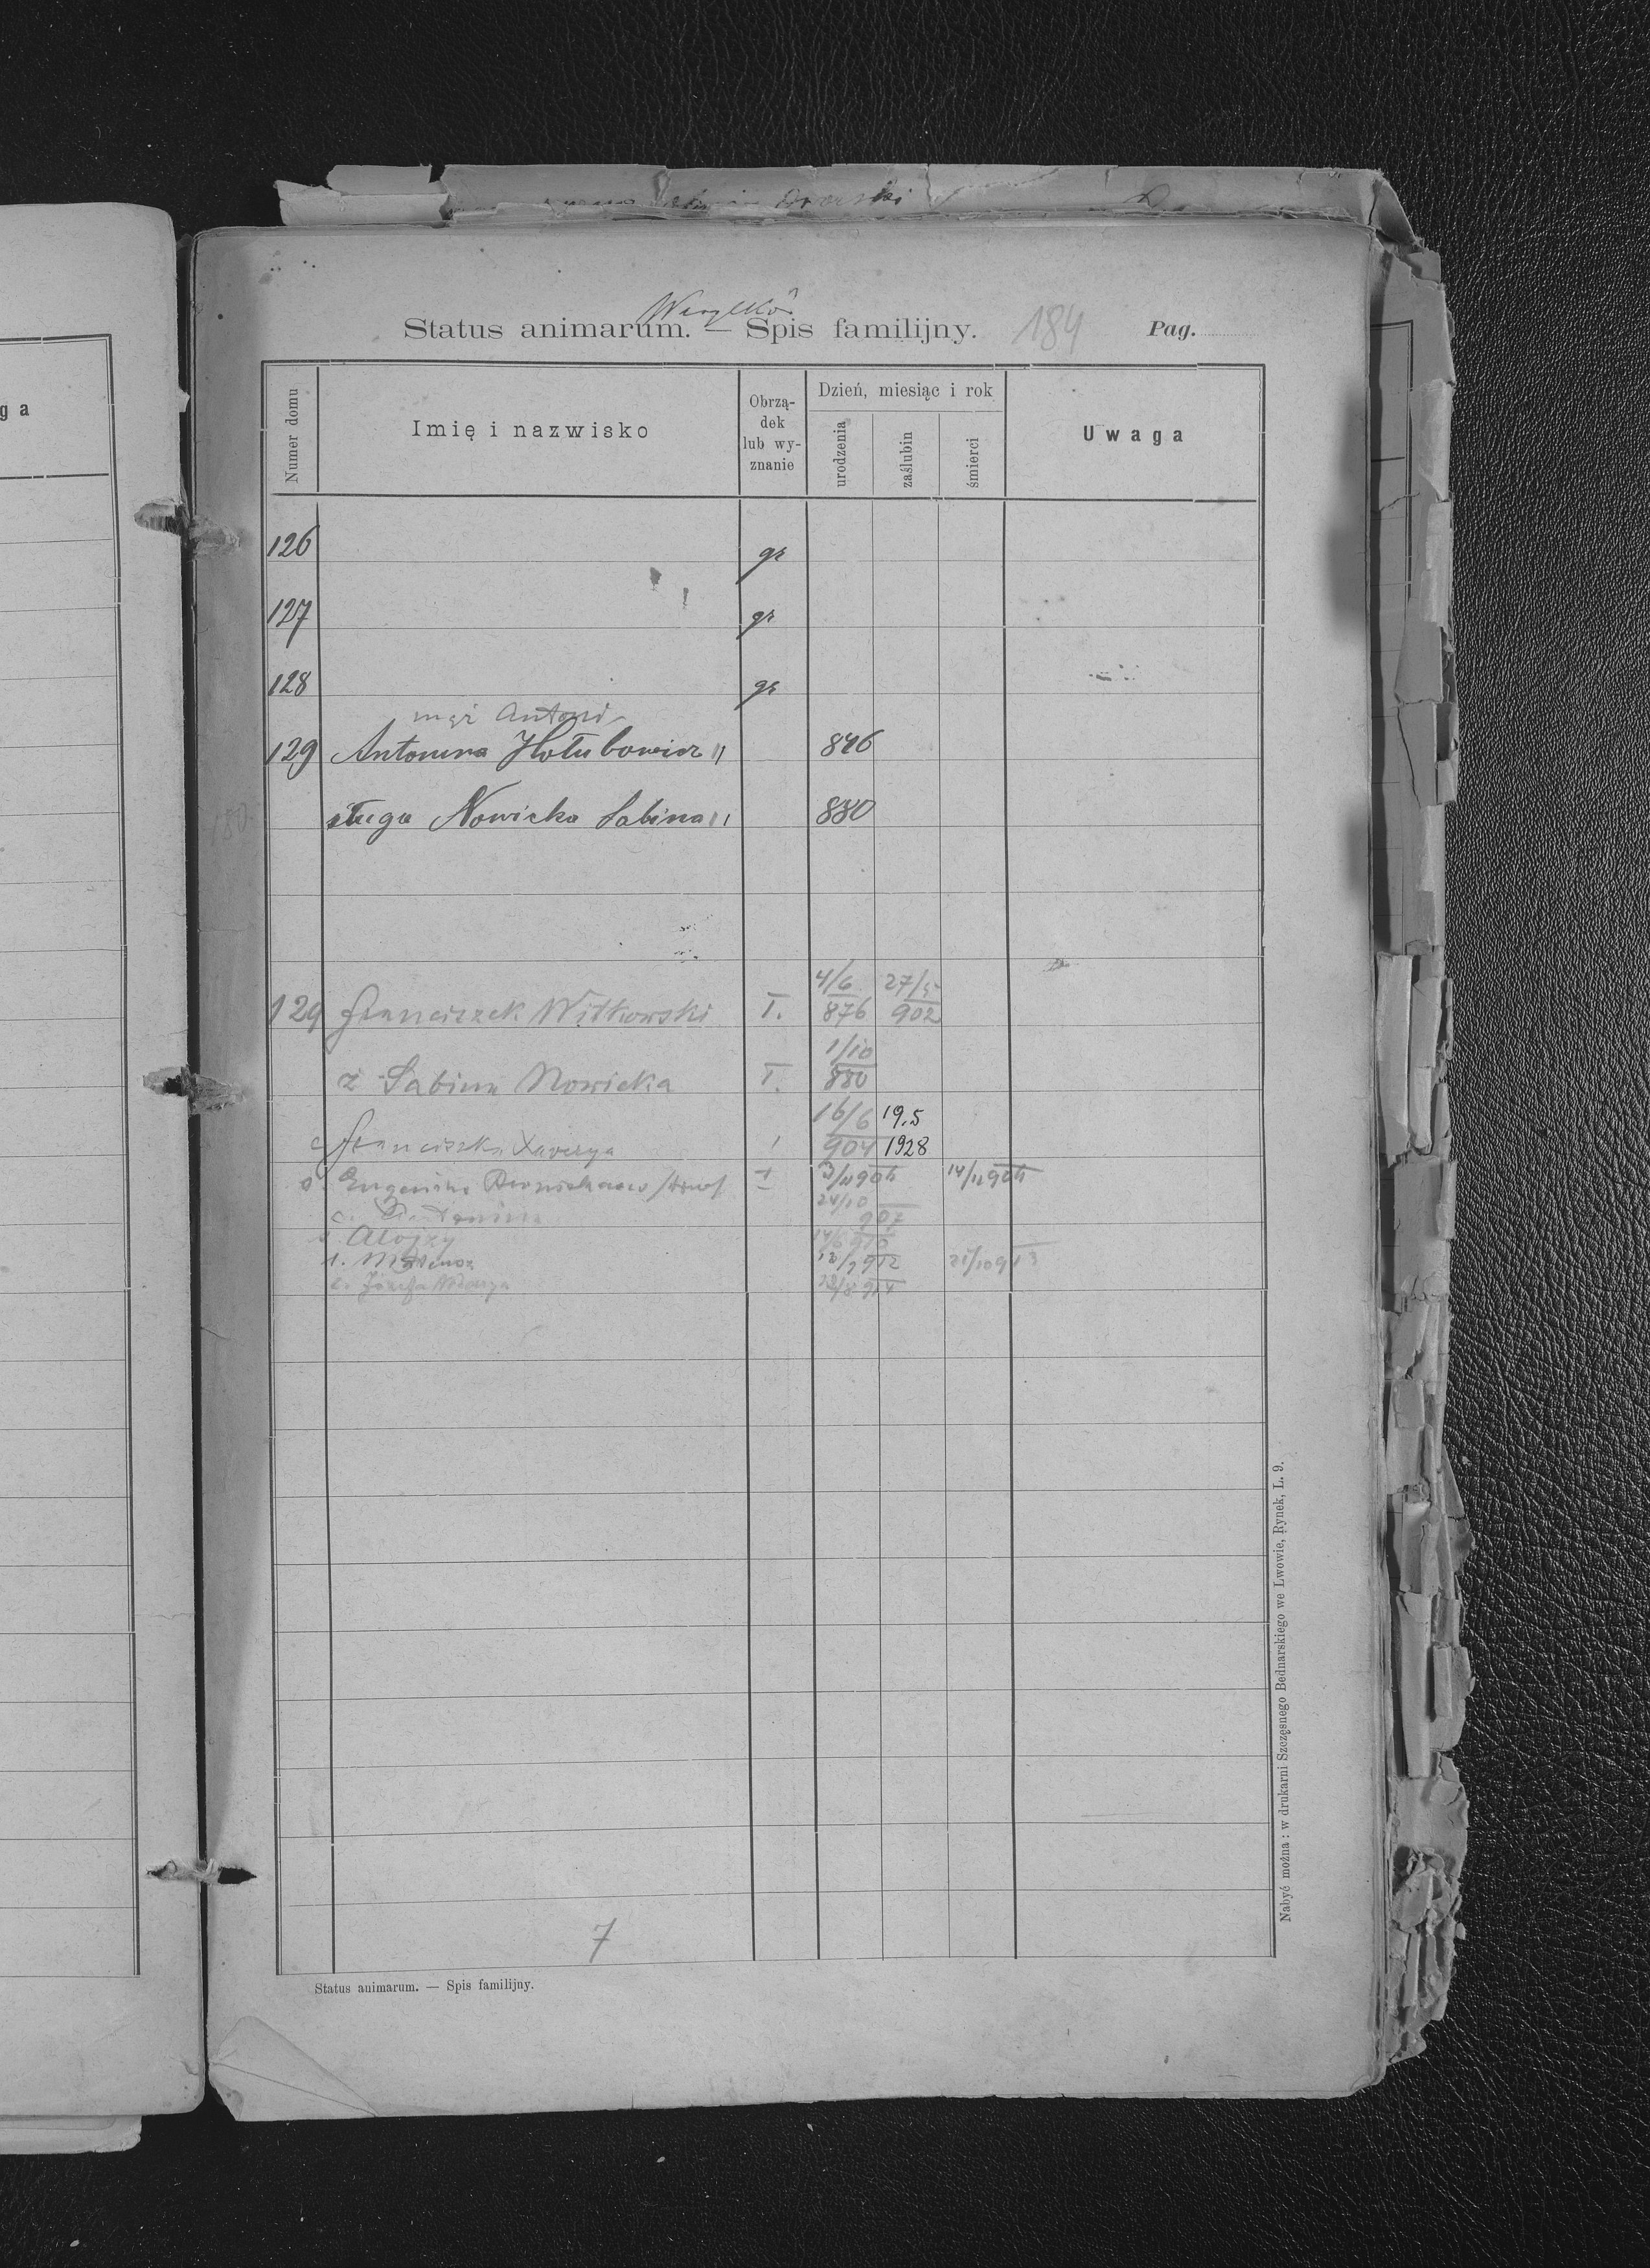 ga
Status animarum. — Spis familijny.
184
Pag.
Numer domu
Imię i nazwisko
Obrzą-
dek
lub wy-
znanie
Dzień, miesiąc i rok
urodzenia
zaślubin
śmierci
Uwaga
126 gr
127 gr
128 gr
mąż Antoni
129 Antonina Hołubowicz " 846
sługa Nowicka Sabina " 880
4/6 27/5
129 Franciszek Witkowski I. 876 902
1/10
ż Sabina Nowicka I. 880
16/6 19.5
c Franciszka Xawerya 904 1928
s. Eugeniusz 904 14/12 904
24/10
c. 907
s Alojzy
s. 912 21/10 913
c. Józefa 914
7
Status animarum. — Spis familijny.
Nabyć można: w drukarni Szczęsnego Bednarskiego we Lwowie, Rynek, L. 9.